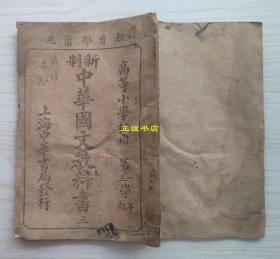 教育部審定
高等小學校用
第一學年
第三學期
新制
中華國文教科書三
上海中華書局發行
正誼书店